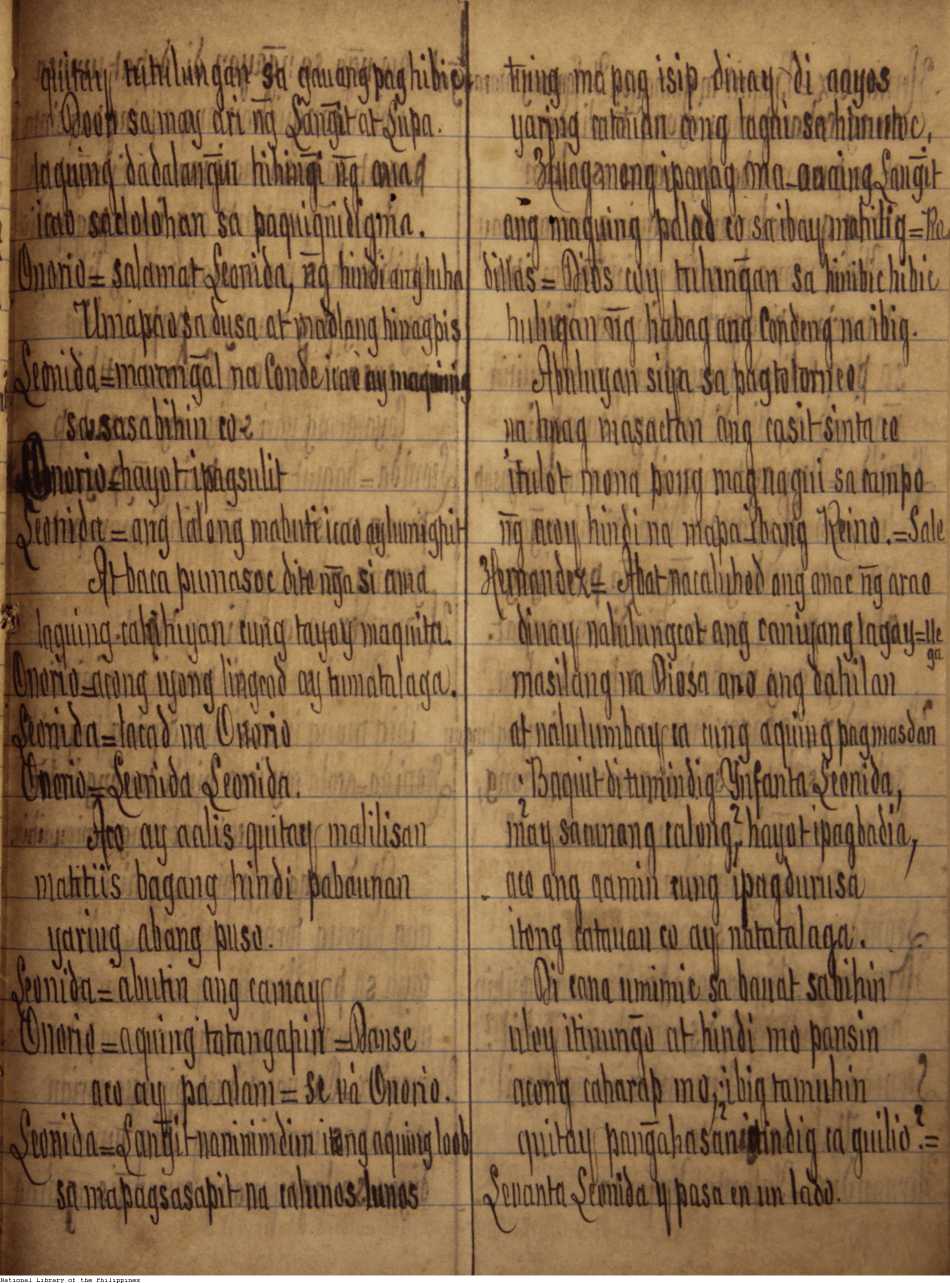 quitay tutulungan sa gauang pag hibic
Doon sa may ari ng̃ Lang̃it at Lupa.
laguing dadalang̃in hihing̃i ng̃ aua
icao saclolohan sa paquiquidigma.
Onorio = salamat Leonida, ng̃ hindi ang luha
Umapao sa dusa at madlang hinagpis
Leonida = marang̃al na Conde icao ay maquinig
sa sasabihin co
Onorio = hayot ipagsulit
Leonida = ang lalong mabuti icao ay lumigpit
At baca pumasoc dito ng̃a si ama
laguing cahihiyan cung tayoy maquita.
Onorio = acong iyong lingcod ay tumatalaga.
Leonida = lacad na Onorio
Onorio = Leonida Leonida.
Aco ay aalis quitay malilisan
matitiis bagang hindi pabaunan
yaring abang puso.
Leonida = abutin ang camay
Onorio = aquing tatangapin = Danse
aco ay pa-alam = se va Onorio.
Leonida = Lang̃it na minimdim itong aquing loob
sa mapagsasapit na calunos lunos
tuing ma pag isip dinay di aayos
yaring catauan cong laghi sa himutoc,
Huag naong ipanag ma aauing Lang̃it
ang maguing palad co sa ibay mahilig = Ro
dillas = Dios coy tuhung̃an sa hinibic hibic
huhigan ng̃ habag ang Condeng na ibig.
Abuluyan siya sa pagtotorneo
na huag masactan ang casit sinta co
itulot mona pong mag nagui sa campo
ng̃ acoy hindi na mapa-ibang Reino. = Sale
Hernandez = Abat nacaluhod ang anac ng̃ arao
dinay nahilungcot ang caniyang lagay = lle
ga
masilang na Diosa ano ang dahilan
at nalulumbay ca cung aquing pagmasdan
Baquit di tumindig Ynfanta Leonida,
may sacunang calong? hayot ipagbadia,
aco ang aamin cung ipagdurusa
itong catauan co ay natatalaga.
Di cana umimic sa bauat sabihin
uloy itinung̃o at hindi mo pansin
acong caharap mo, ibig tamuhin ?
quitay pang̃ahasan? tindig ca guilio? =
Levanta Leonida y pasa en un lado.
National Library of the Philippines